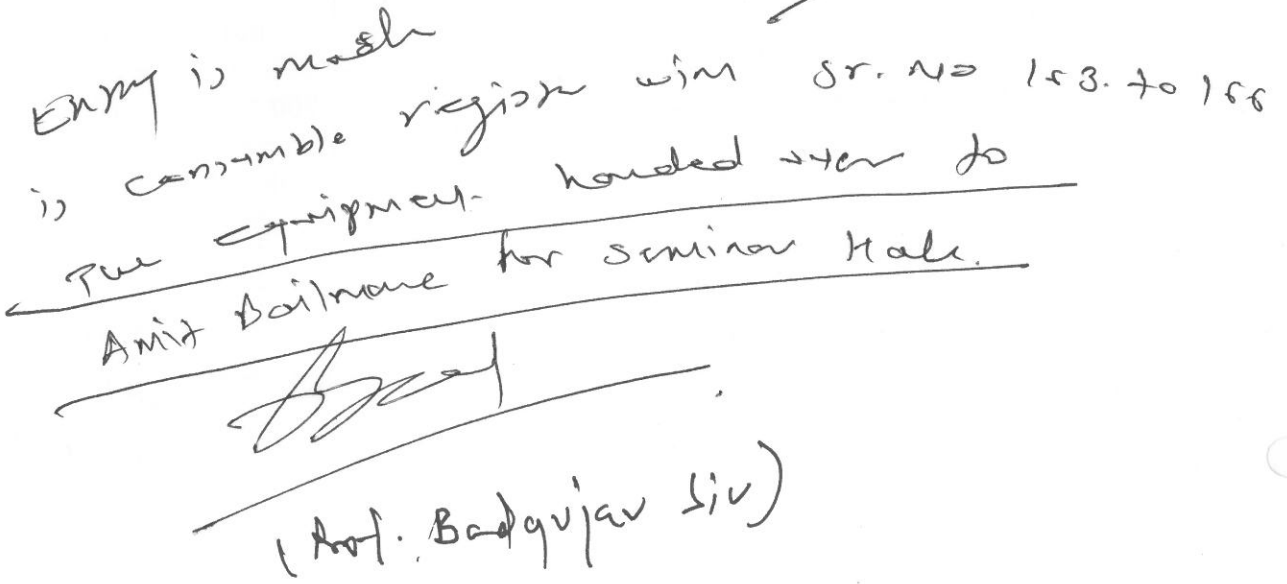 Entry is made
is consumble register with Sr. No 153. to 166
The equipment handed over to
Amit Boilmare for Seminar Hall.
(Prof. Badgujar Sir)